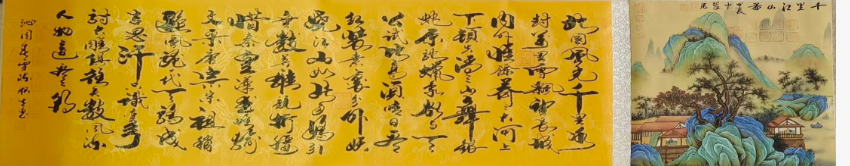 千里江山
北国风光千里冰
封万里雪飘望长城
内外惟余莽莽大河上
下顿失滔滔山舞银
蛇原驰蜡象欲与天
公试比高须晴日看
红装素裹分外妖
娆江山如此多娇引
无数英雄竞折腰
惜秦皇汉武略输
文采唐宗宋祖稍
逊风骚一代天骄成
吉思汗只识弯弓
射大雕俱往矣数风流
人物还看今朝
沁园春雪